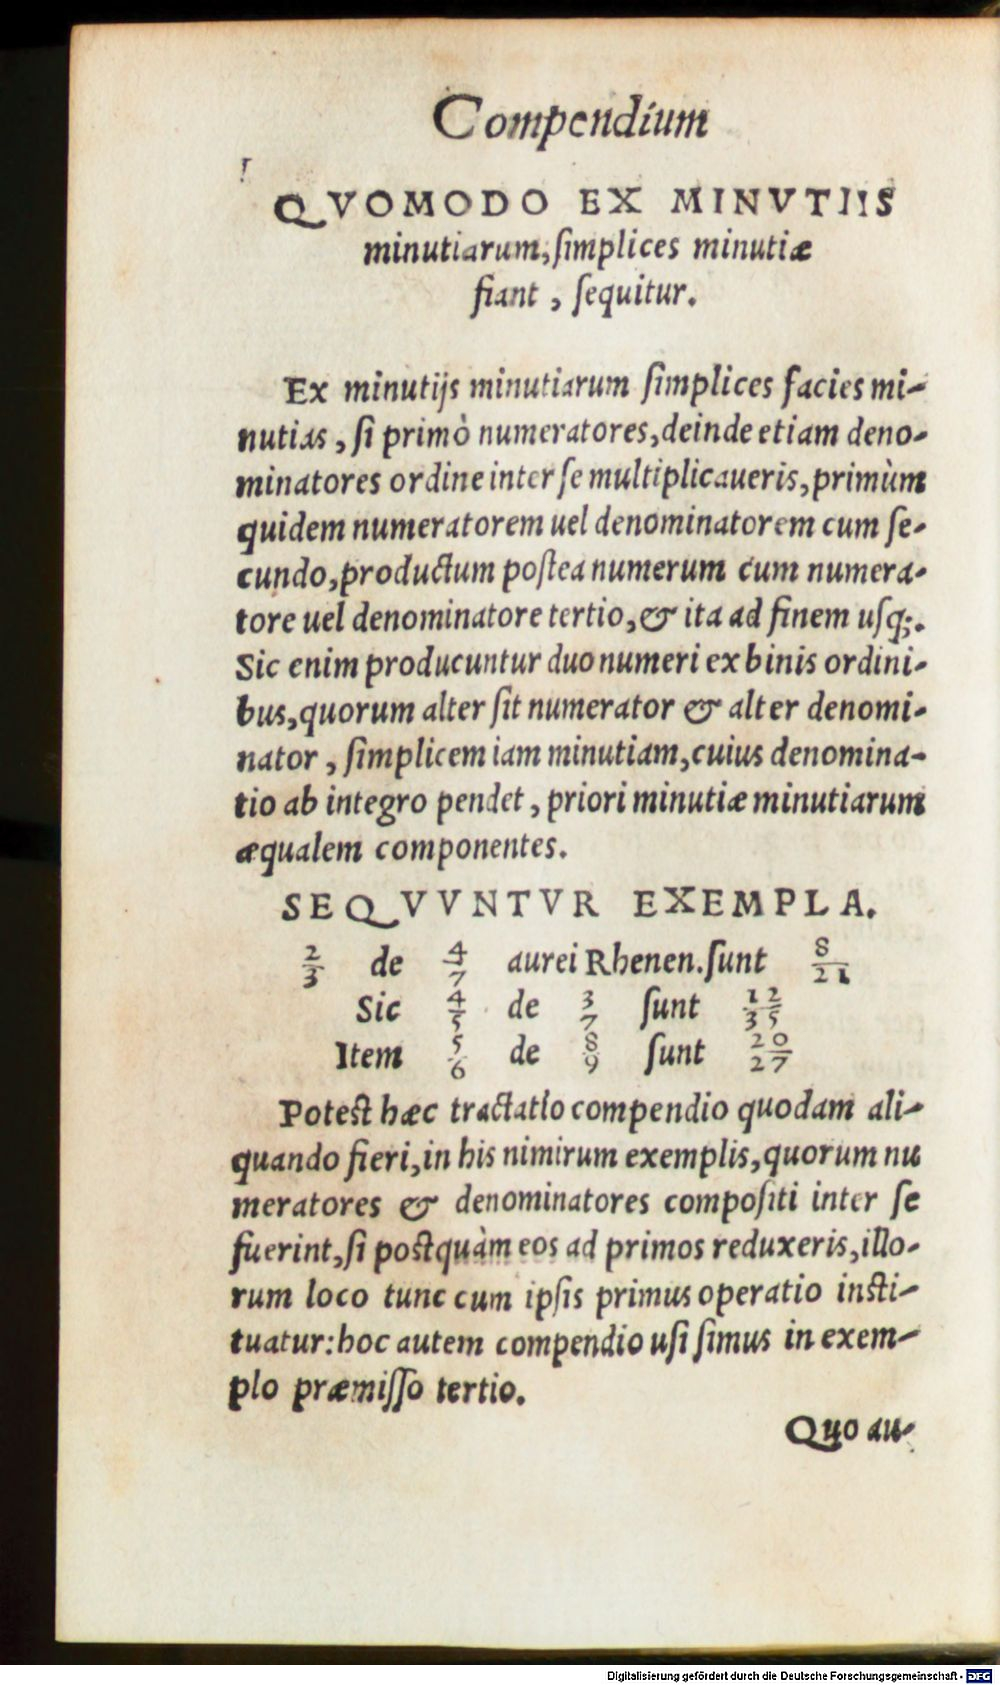 Compendium
QVOMODO EX MINVTIIS
minutiarum, ſimplices minutiæ
fiant, ſequitur.
Ex minutijs minutiarum ſimplices facies mi-
nutias, ſi primò numeratores, deinde etiam deno-
minatores ordine inter ſe multiplicaueris, primùm
quidem numeratorem uel denominatorem cum ſe-
cundo, productum poſtea numerum cum numera-
tore uel denominatore tertio, & ita ad finem uſq;.
Sic enim producuntur duo numeri ex binis ordini-
bus, quorum alter ſit numerator & alter denomi-
nator, ſimplicem iam minutiam, cuius denomina-
tio ab integro pendet, priori minutiæ minutiarum
æqualem componentes.
SEQVVNTVR EXEMPLA.
2/3 de 4/7 aurei Rhenen. ſunt 8/21
Sic 4/5 de 3/7 ſunt 12/35
Item 5/6 de 8/9 ſunt 20/27
Poteſt hæc tractatio compendio quodam ali-
quando fieri, in his nimirum exemplis, quorum nu
meratores & denominatores compoſiti inter ſe
fuerint, ſi poſtquàm eos ad primos reduxeris, illo-
rum loco tunc cum ipſis primus operatio inſti-
tuatur: hoc autem compendio uſi ſimus in exem-
plo præmiſſo tertio.
Quo au-
Digitalisierung gefördert durch die Deutsche Forschungsgemeinschaft - DFG